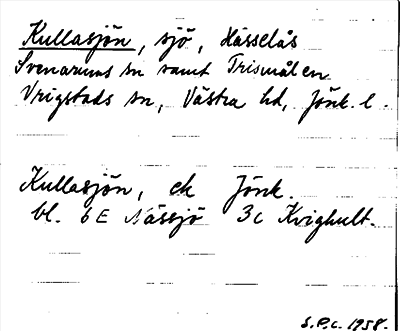 Kullasjön, sjö, Hässelås
Svenarums sn samt Trismålen
Vrigstads sn, Västra hd, Jönk. l.
Kullasjön, ek Jönk.
bl. 6E Nässjö 3c Kvighult.
S.P.c. 1958.